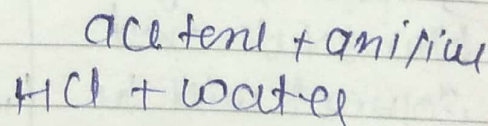 acetene + anisiue
HCl + water